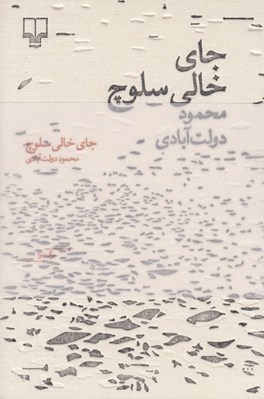 جای
خالی سلوچ
محمود
دولت‌آبادی
جای خالی سلوچ
محمود دولت‌آبادی